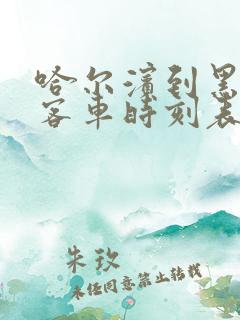 哈尔滨到黑
客车时刻表
朱玫
未经同意禁止转载